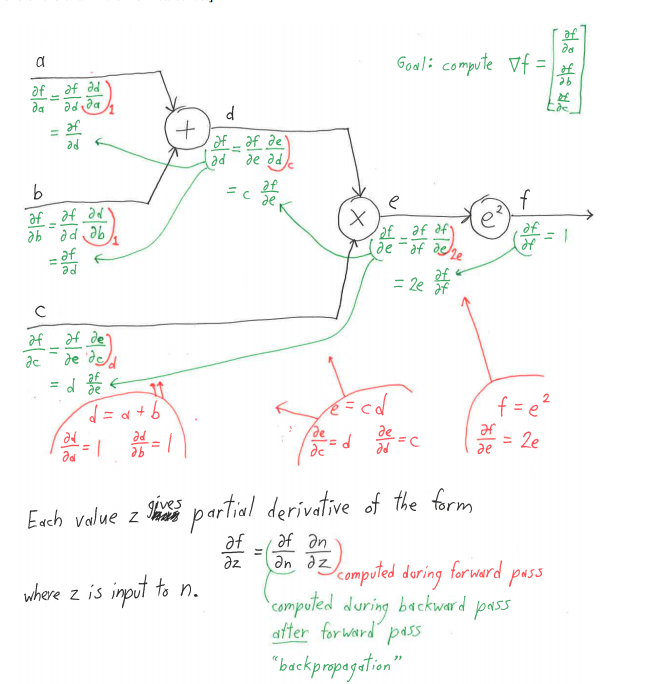 Goal: compute ∇f = [∂f/∂a ∂f/∂b ∂f/∂c]
a
∂f/∂a = ∂f/∂d ∂d/∂a 1
= ∂f/∂d
+
d
∂f/∂d = ∂f/∂e ∂e/∂d c
= c ∂f/∂e
b
∂f/∂b = ∂f/∂d ∂d/∂b 1
= ∂f/∂d
×
e
∂f/∂e = ∂f/∂f ∂f/∂e 2e
= 2e ∂f/∂f
e²
f
∂f/∂f = 1
c
∂f/∂c = ∂f/∂e ∂e/∂c d
= d ∂f/∂e
d = a + b
∂d/∂a = 1 ∂d/∂b = 1
e = cd
∂e/∂c = d ∂e/∂d = c
f = e²
∂f/∂e = 2e
Each value z gives partial derivative of the form
∂f/∂z = ∂f/∂n ∂n/∂z
computed during forward pass
where z is input to n.
computed during backward pass
after forward pass
"backpropagation"